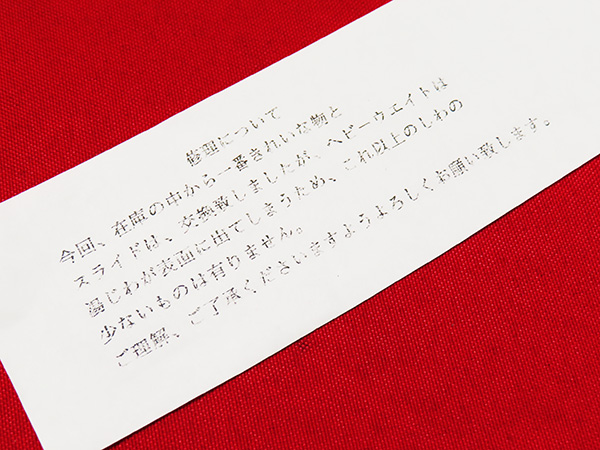 修理について
今回、在庫の中から一番きれいな物と
スライドは、交換致しましたが、ヘビーウェイトは
湯じわが表面に出てしまうため、これ以上のしわの
少ないものは有りません。
ご理解、ご了承くださいますようよろしくお願い致します。